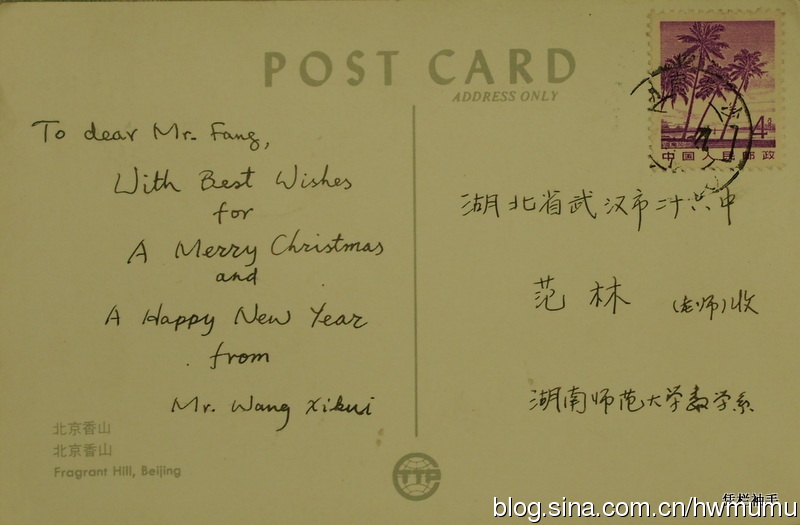 POST CARD
ADDRESS ONLY
To dear Mr. Fang,
With Best Wishes
for
A Merry Christmas
and
A Happy New Year
from
Mr. Wang Xikui
北京香山
北京香山
Fragrant Hill, Beijing
4分
中国人民邮政
湖北省武汉市二十六中
范林 (老师)收
湖南师范大学数学系
TTP
凭栏袖手
blog.sina.com.cn/hwmumu